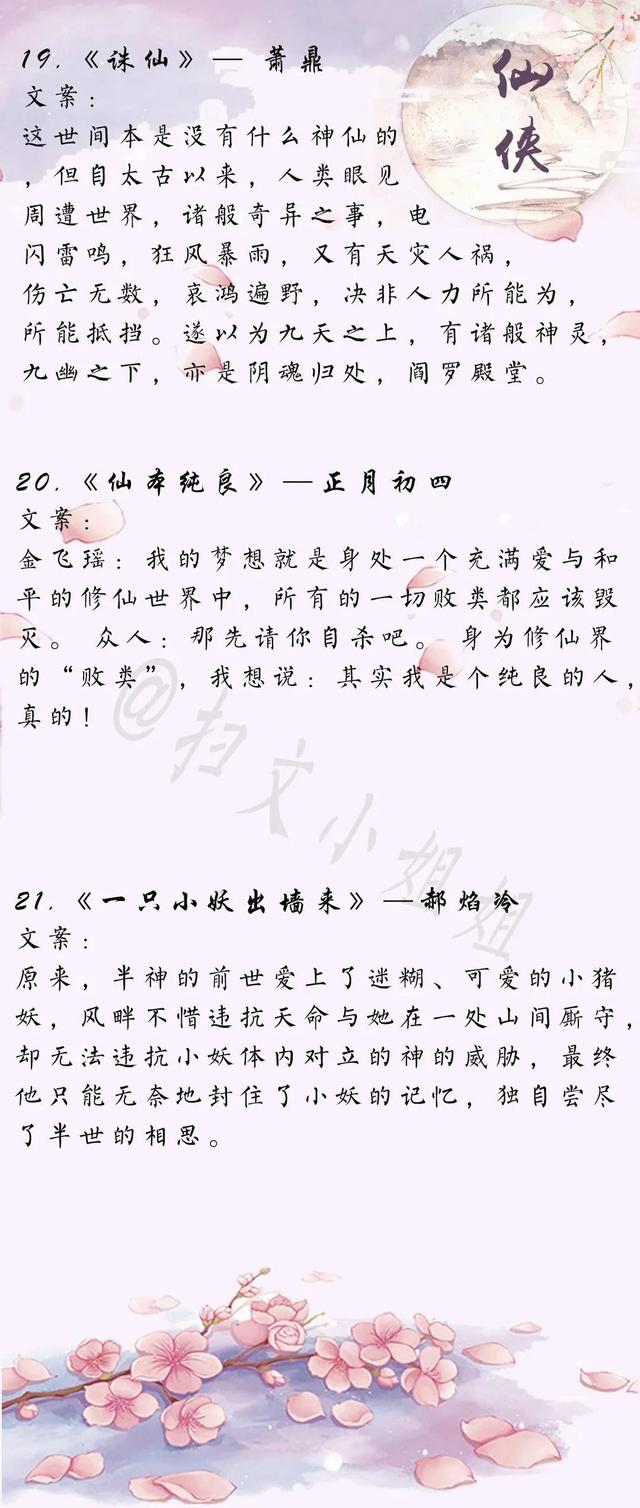 19.《诛仙》— 萧鼎
仙侠
文案：
这世间本是没有什么神仙的
，但自太古以来，人类眼见
周遭世界，诸般奇异之事，电
闪雷鸣，狂风暴雨，又有天灾人祸，
伤亡无数，哀鸿遍野，决非人力所能为，
所能抵挡。遂以为九天之上，有诸般神灵，
九幽之下，亦是阴魂归处，阎罗殿堂。
20.《仙本纯良》—正月初四
文案：
金飞瑶：我的梦想就是身处一个充满爱与和
平的修仙世界中，所有的一切败类都应该毁
灭。 众人：那先请你自杀吧。 身为修仙界
的“败类”，我想说：其实我是个纯良的人，
真的！
@扫文小姐姐
21.《一只小妖出墙来》—郝焰冷
文案：
原来，半神的前世爱上了迷糊、可爱的小猪
妖，风畔不惜违抗天命与她在一处山间厮守，
却无法违抗小妖体内对立的神的威胁，最终
他只能无奈地封住了小妖的记忆，独自尝尽
了半世的相思。